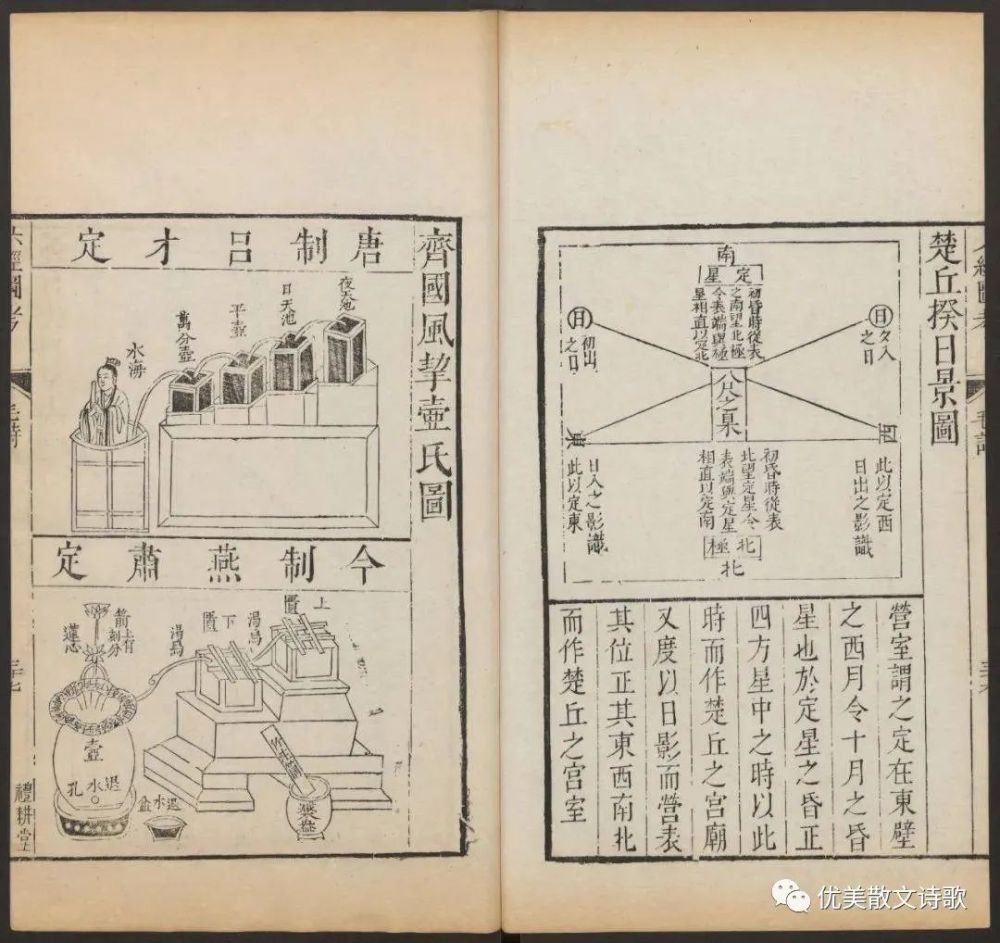 楚丘揆日景圖
南
定星
初昏時從表
之南望北極
令表端與極
星相直以定北
日
夕入
之日
日
初出
之日
八尺之臬
西
東
此以定西
日出之影識
初昏時從表
北望定星令
表端與定星
相直以定南
日入之影識
此以定東
北極
北
營室謂之定在東壁
之西月令十月之昏
星也於定星之昏正
四方星中之時以此
時而作楚丘之宮廟
又度以日影而營表
其位正其東西南北
而作楚丘之宮室
齊國風挈壷氏圖
唐制呂才定
夜天池
日天池
平壷
萬分壷
水海
今制燕肅定
上匱
渴烏
下匱
渴烏
箭上有
刻分
蓮心
壷
退水孔
退水盆
竹注筒
減水盎
六經圖考
毛詩
三十七
禮耕堂
优美散文诗歌